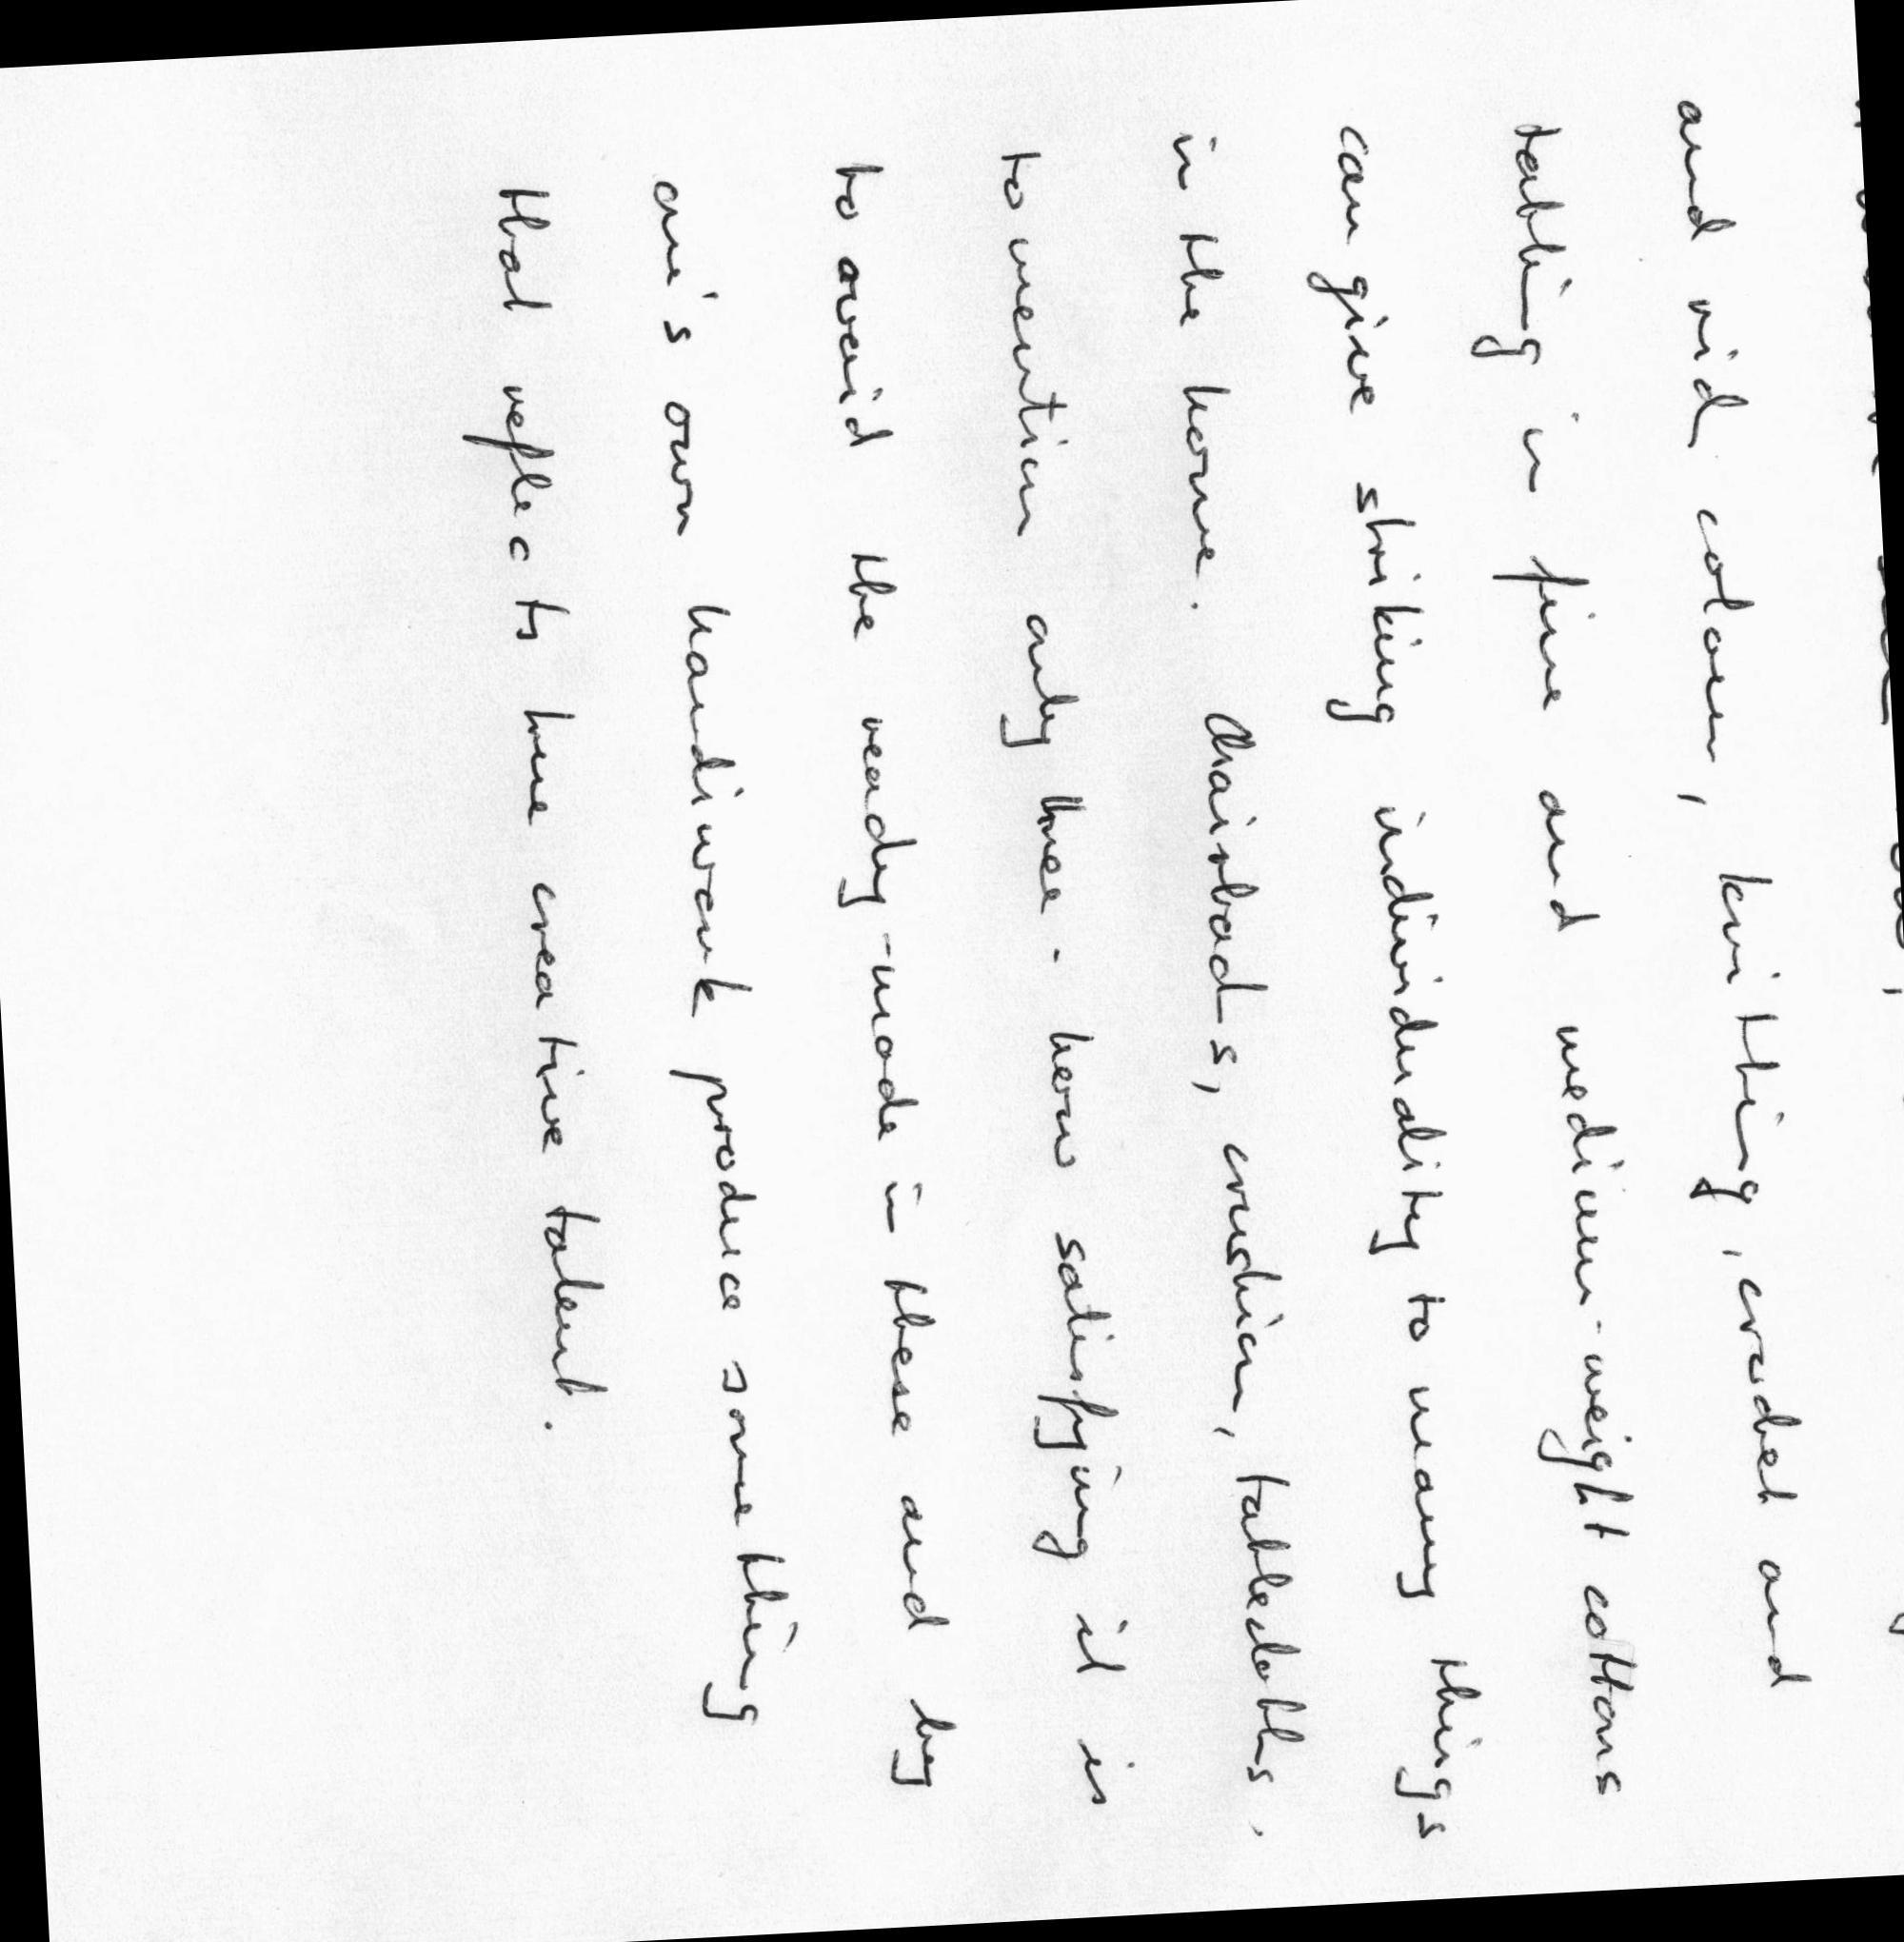 and rid colour, knitting, crochet and
tatting in fine and medium-weight cottons
can give striking individuality to many things
in the home. Chairbads, cushion, tablecloths,
to mention only three - how satisfying it is
to avoid the ready-made in these and by
one's own handiwork produce something
that reflects true creative talent.